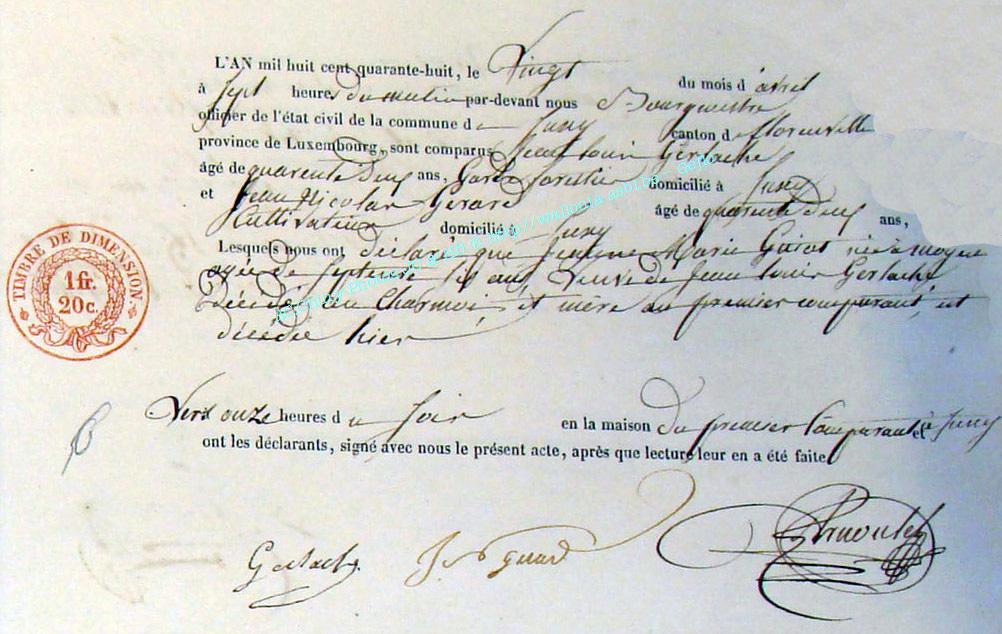 L'AN mil huit cent quarante-huit, le Vingt du mois d'avril
à Sept heures du matin par-devant nous Bourguestre
officier de l'état civil de la commune de Jusy canton d Florenville
province de Luxembourg, sont comparus Jean louis Gerlache
âgé de quarente deux ans, Garde forestier domicilié à Jusy
et Jean Nicolas Gerard âgé de quarente deux ans,
Cultivateur domicilié à Jusy
Lesquels nous ont déclaré que Jeanne Marie Guiot née à moyen
agée de Septente six ans Veuve de Jean louis Gerlache
Décédé au Charmois, et mère du premier comparant, est
décédée hier
Vers onze heures du Soir en la maison du premier Comparant à Jusy et
ont les déclarants, signé avec nous le présent acte, après que lecture leur en a été faite
TIMBRE DE DIMENSION
1 fr.
20 c.
Gerlache J N gerard